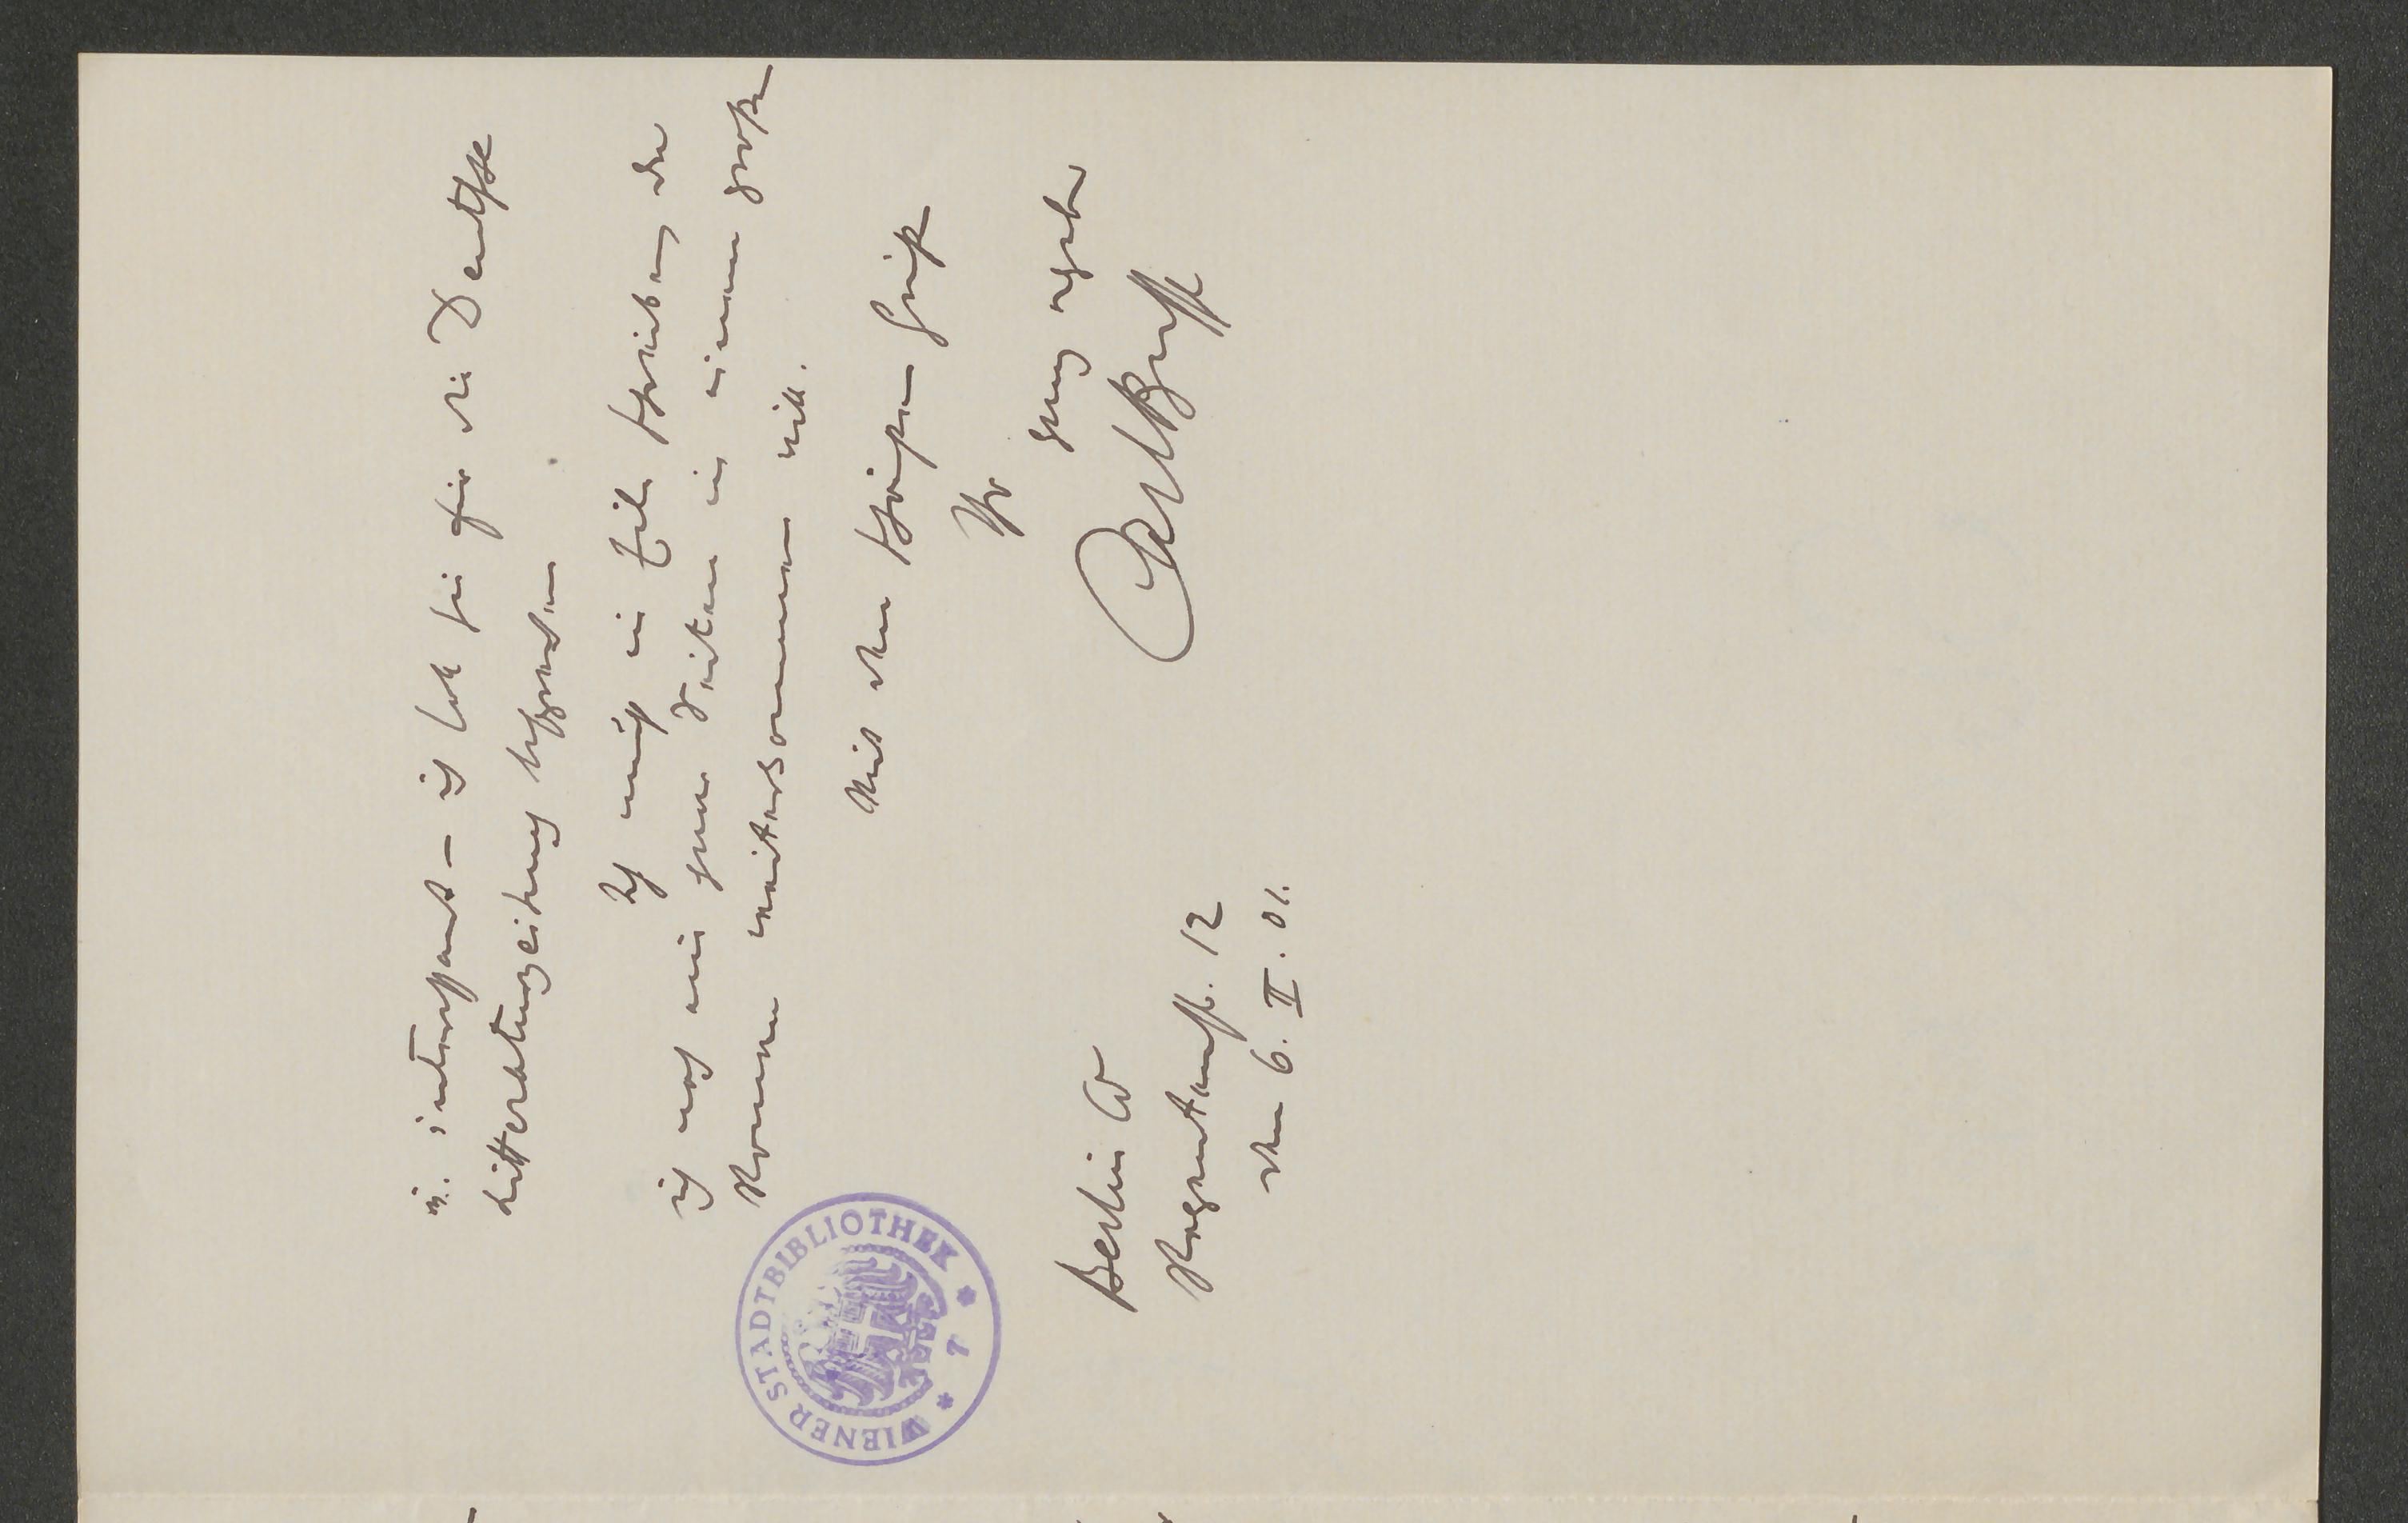 u. interessant – ich habe sie für die Deutsche
Litteraturzeitung besprochen
Ich muß in Eile schreiben, da
ich noch ein paar Seiten in einem großen
Roman weiterkommen will.
Mit den schönsten Grüßen
Ihr
ganz ergebener
Carl Busse
Berlin W
Regentenstr. 12
den 6. II. 01.
WIENER STADTBIBLIOTHEK * 7 *